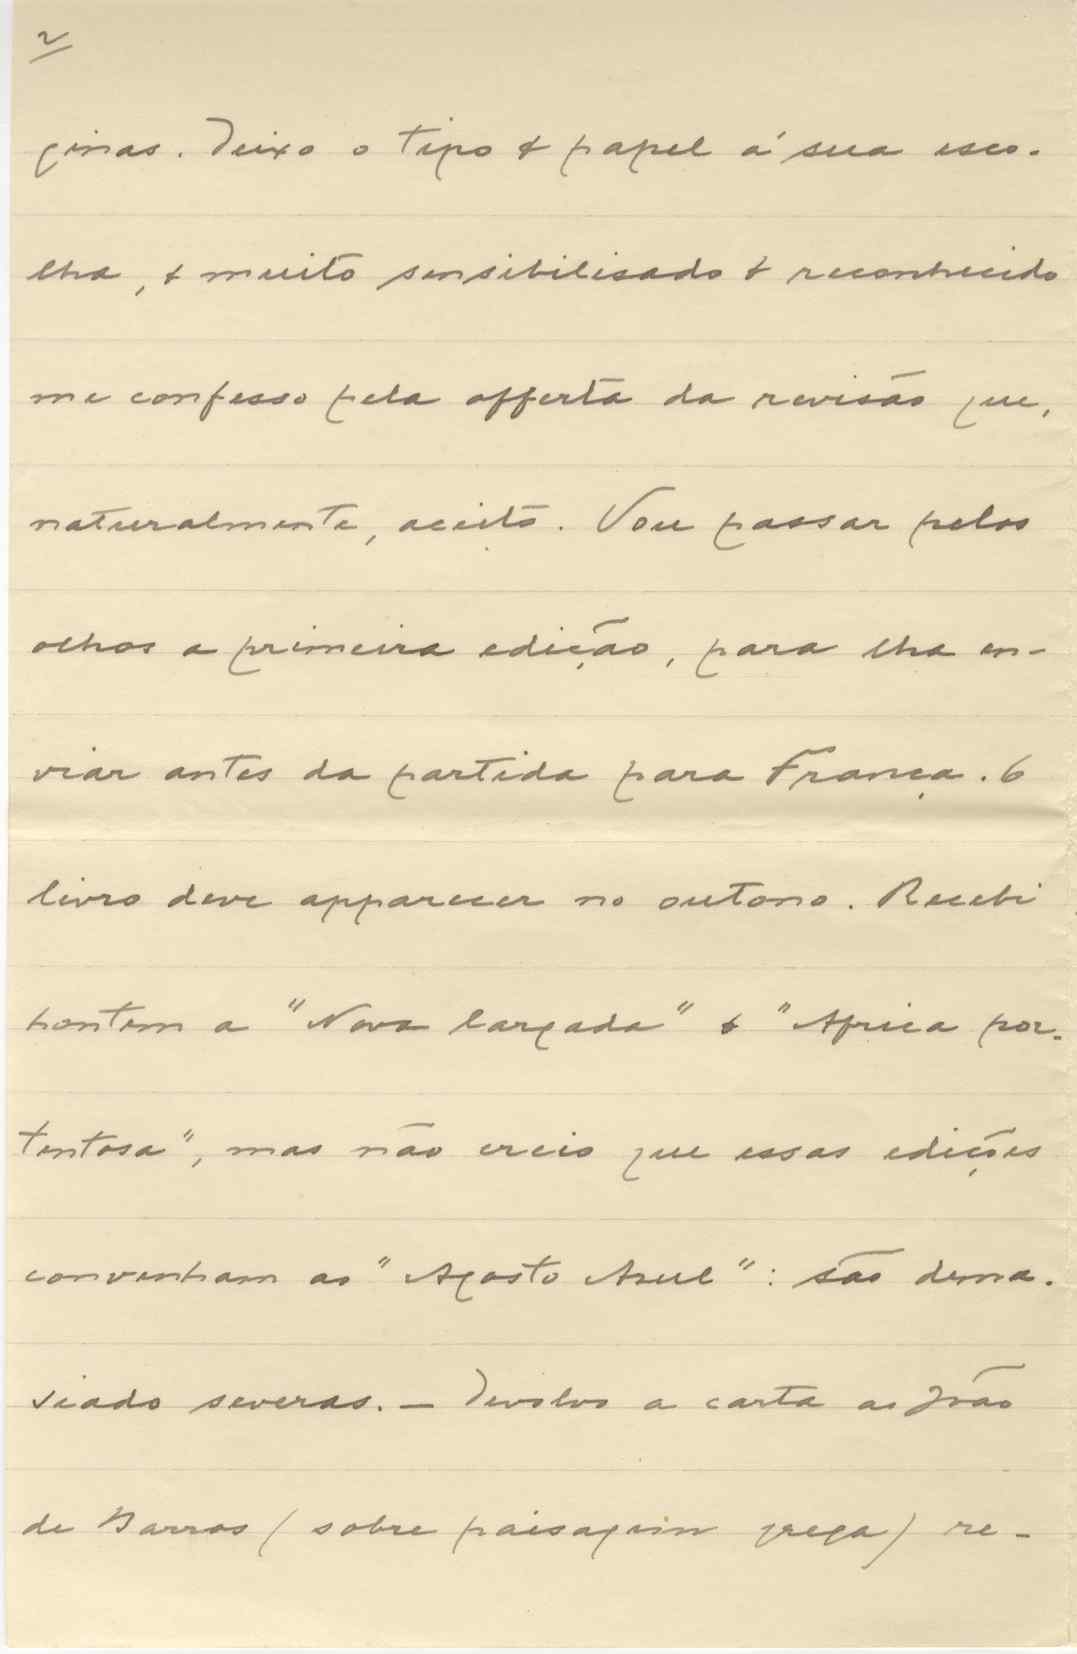 2
ginas. Deixo o tipo & papel á sua esco-
lha, & muito sensibilisado & reconhecido
me confesso pela offerta da revisão que,
naturalmente, aceito. Vou passar pelos
olhos a primeira edição, para lha en-
viar antes da partida para França. O
livro deve apparecer no outono. Recebi
hontem a "Nova largada" & "Africa por-
tentosa", mas não creio que essas edições
convenham ao "Agosto Azul": são dema-
siado severas. — Devolvo a carta ao João
de Barros (sobre paisagem grega) re-